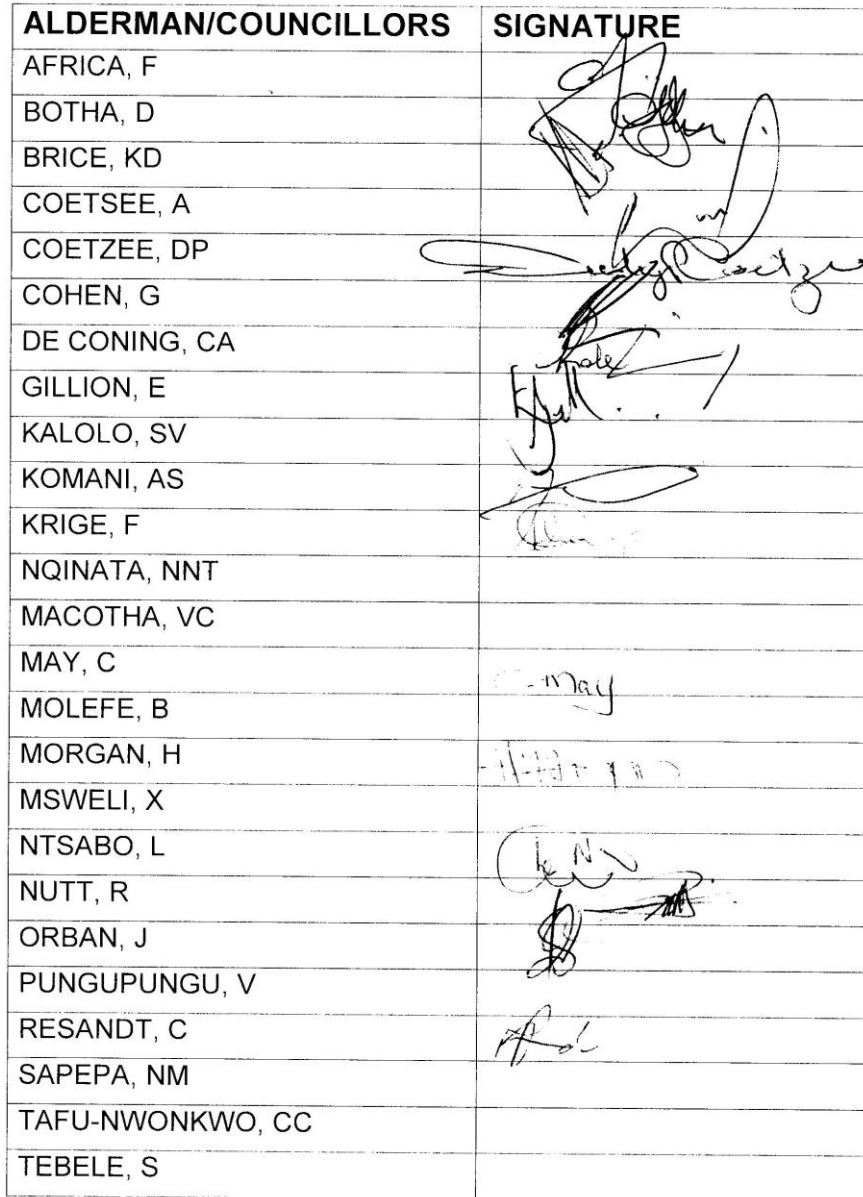 ALDERMAN/COUNCILLORS SIGNATURE
AFRICA, F
BOTHA, D
BRICE, KD
COETSEE, A
COETZEE, DP
COHEN, G
DE CONING, CA
GILLION, E
KALOLO, SV
KOMANI, AS
KRIGE, F
NQINATA, NNT
MACOTHA, VC
MAY, C May
MOLEFE, B
MORGAN, H
MSWELI, X
NTSABO, L
NUTT, R
ORBAN, J
PUNGUPUNGU, V
RESANDT, C
SAPEPA, NM
TAFU-NWONKWO, CC
TEBELE, S